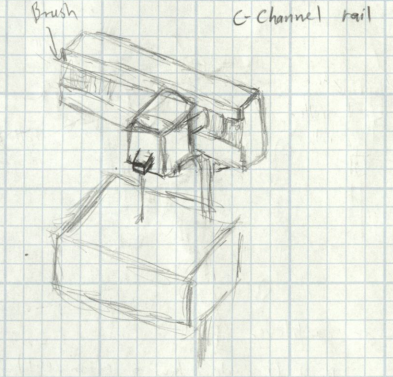 Brush
C-Channel rail